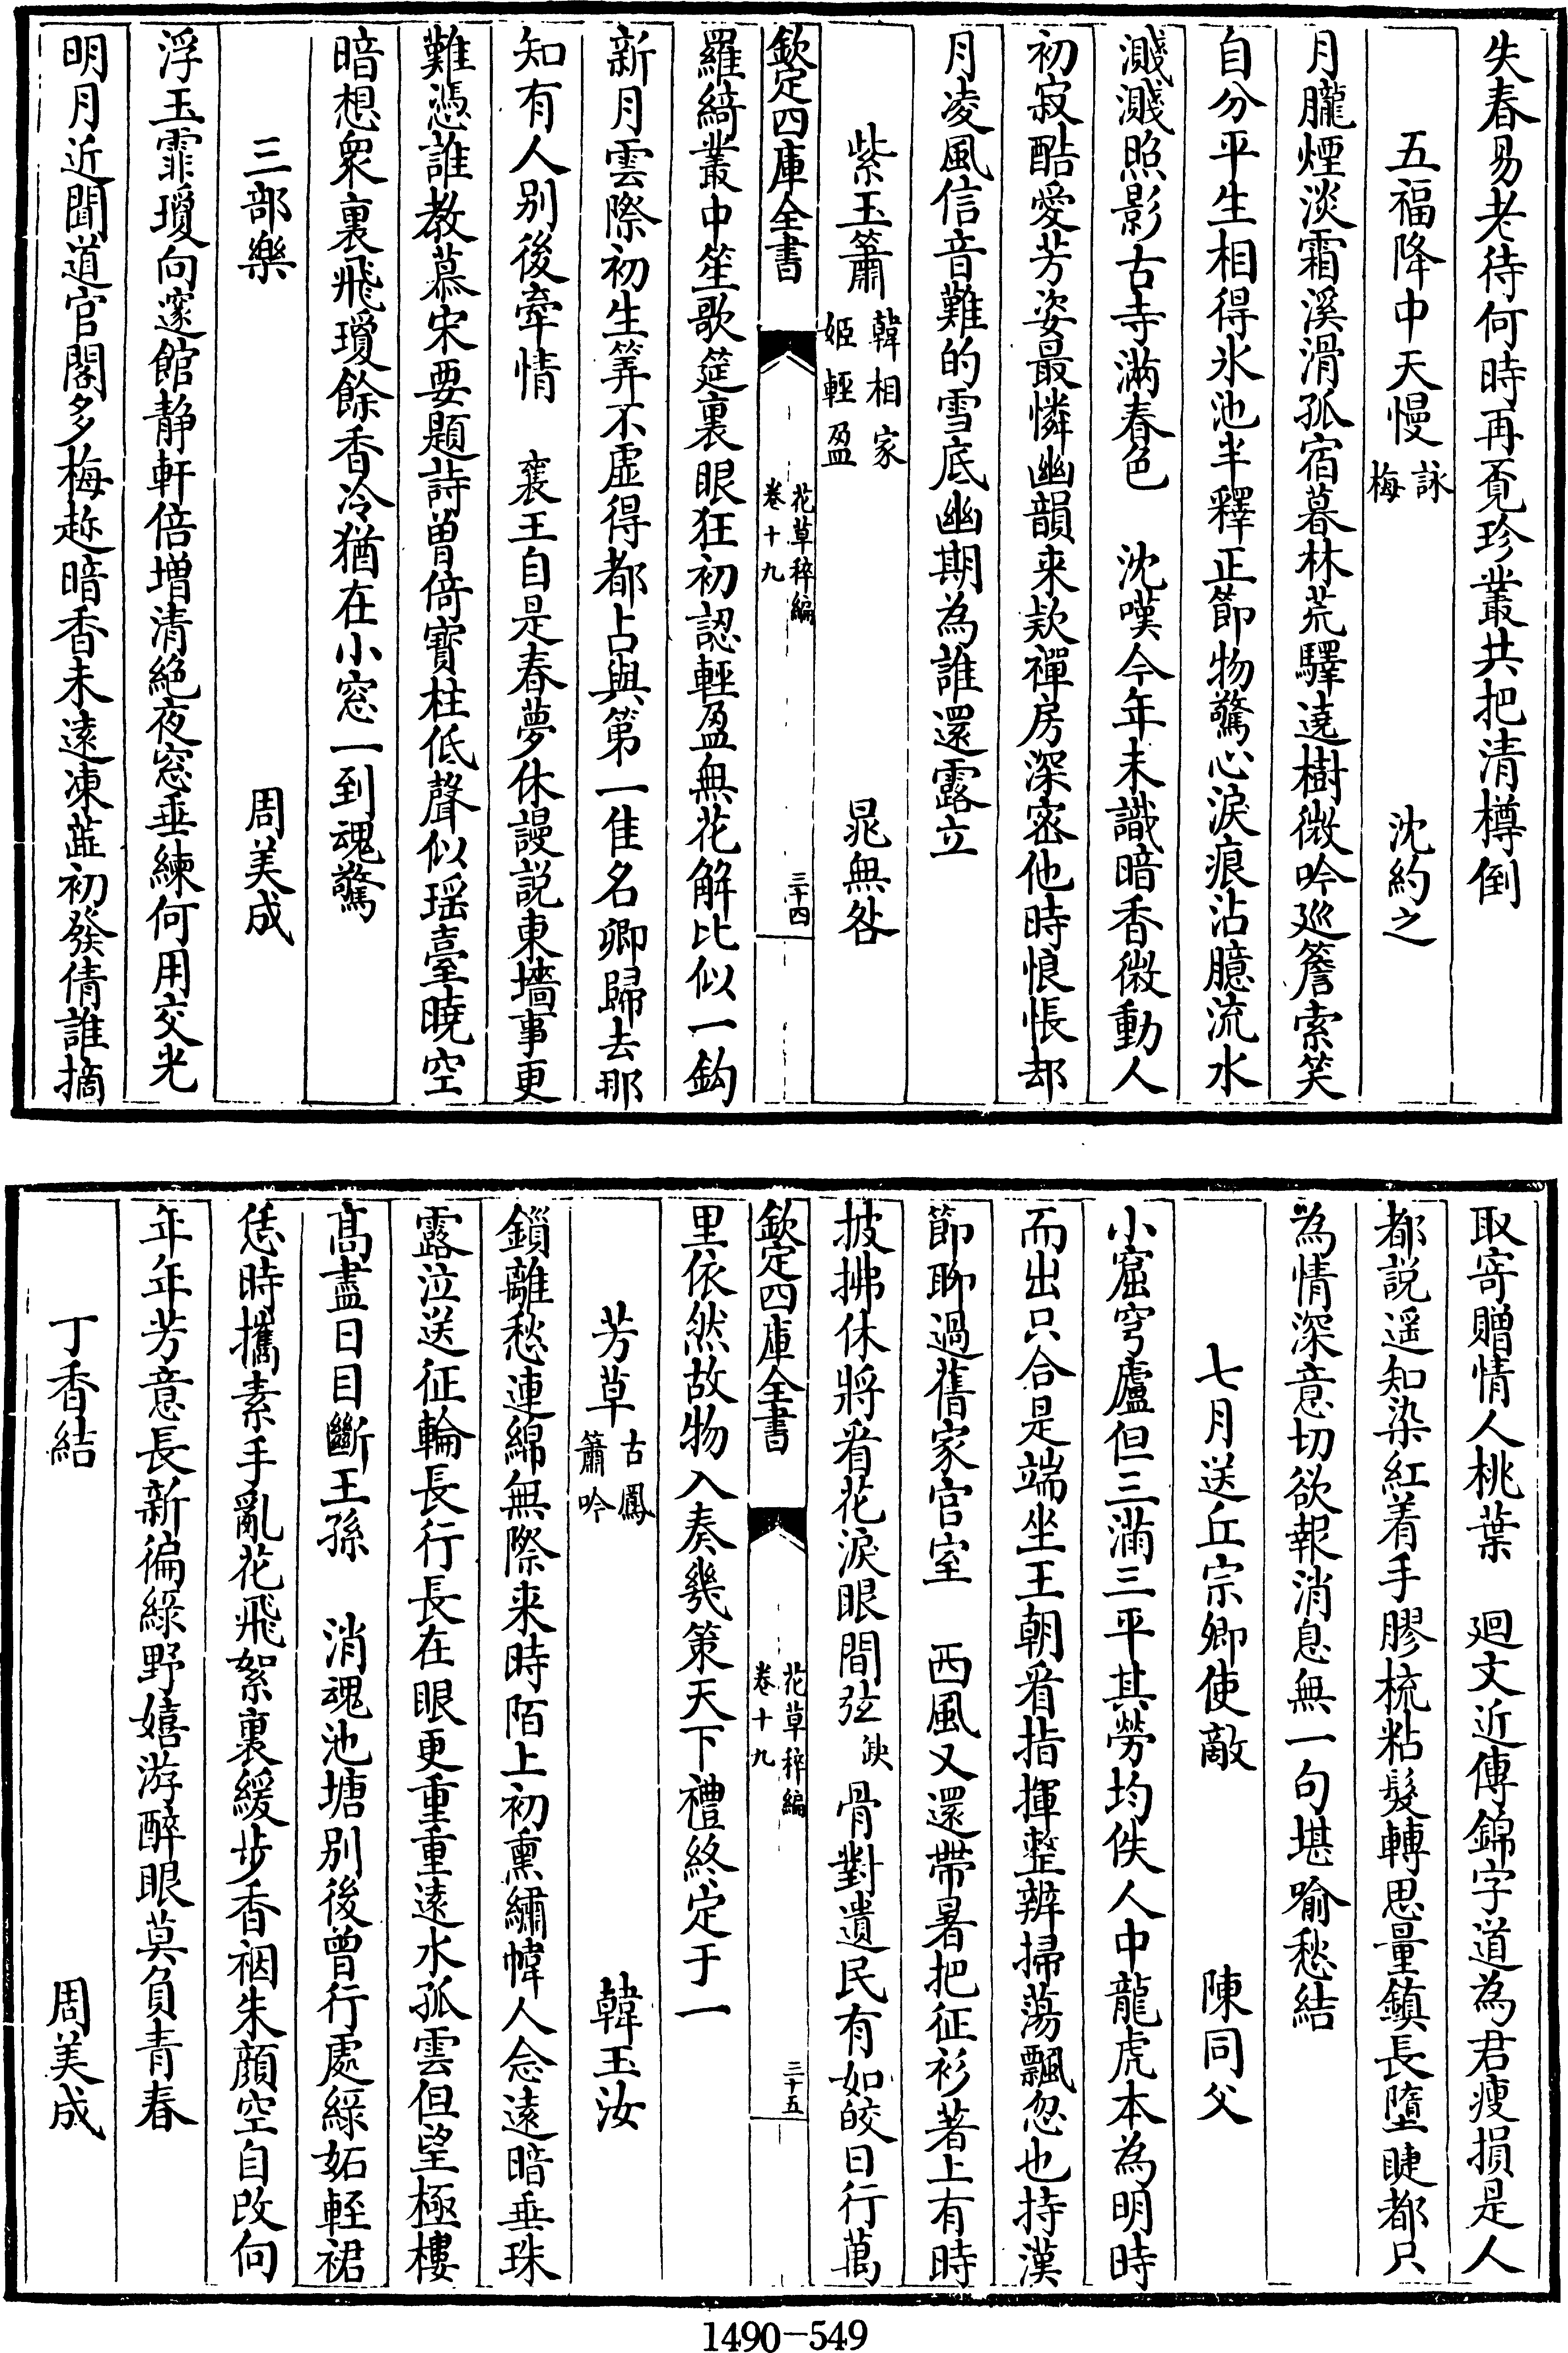 失春易老待何時再覔珍叢共把清樽倒
五福降中天慢 詠梅 沈約之
月朧煙淡霜溪滑孤宿暮林荒驛遶樹微吟巡簷索笑
自分平生相得氷池半釋正節物驚心淚痕沾臆流水
濺濺照影古寺滿春色　沈嘆今年未識暗香微動人
初寂酷愛芳姿最憐幽韻来欵禪房深宻他時悵悵却
月凌風信音難的雪底幽期為誰還露立
紫玉簫 韓相家姬輕盈 晁無咎
欽定四庫全書
花草稡編
卷十九
三十四
羅綺叢中笙歌筵裏眼狂初認輕盈無花解比似一鈎
新月雲際初生筭不虛得都占與第一佳名卿歸去那
知有人别後牽情　襄王自是春夢休謾説東墻事更
難憑誰教慕宋要題詩曽倚寳柱低聲似瑶臺曉空
暗想衆裏飛瓊餘香冷猶在小窓一到魂驚
三部樂 周美成
浮玉霏瓊向邃館静軒倍増清絶夜窓垂練何用交光
明月近聞道官閣多梅趂暗香未遠凍蘂初發倩誰摘
取寄贈情人桃葉　廻文近傳錦字道為君瘦損是人
都説遥知染紅着手膠梳粘髮轉思量鎮長墮睫都只
為情深意切欲報消息無一句堪喻愁結
七月送丘宗卿使敵 陳同父
小窟穹廬但三滿三平其勞均佚人中龍虎本為明時
而出只合是端坐王朝看指揮整辨掃蕩飄忽也持漢
節聊過舊家宫室　西風又還帶暑把征衫著上有時
披拂休將看花淚眼間弦 缺 骨對遺民有如皎日行萬
欽定四庫全書
花草稡編
卷十九
三十五
里依然故物入奏幾策天下禮終定于一
芳草 古鳳簫吟 韓玉汝
鎻離愁連綿無際来時陌上初熏繡幃人念遠暗垂珠
露泣送征輪長行長在眼更重重遠水孤雲但望極樓
髙盡日目斷王孫　消魂池塘别後曽行處綠妬輕裙
恁時攜素手亂花飛絮裏緩步香裀朱顔空自改向
年年芳意長新徧綠野嬉游醉眼莫負青春
丁香結 周美成
1490－549